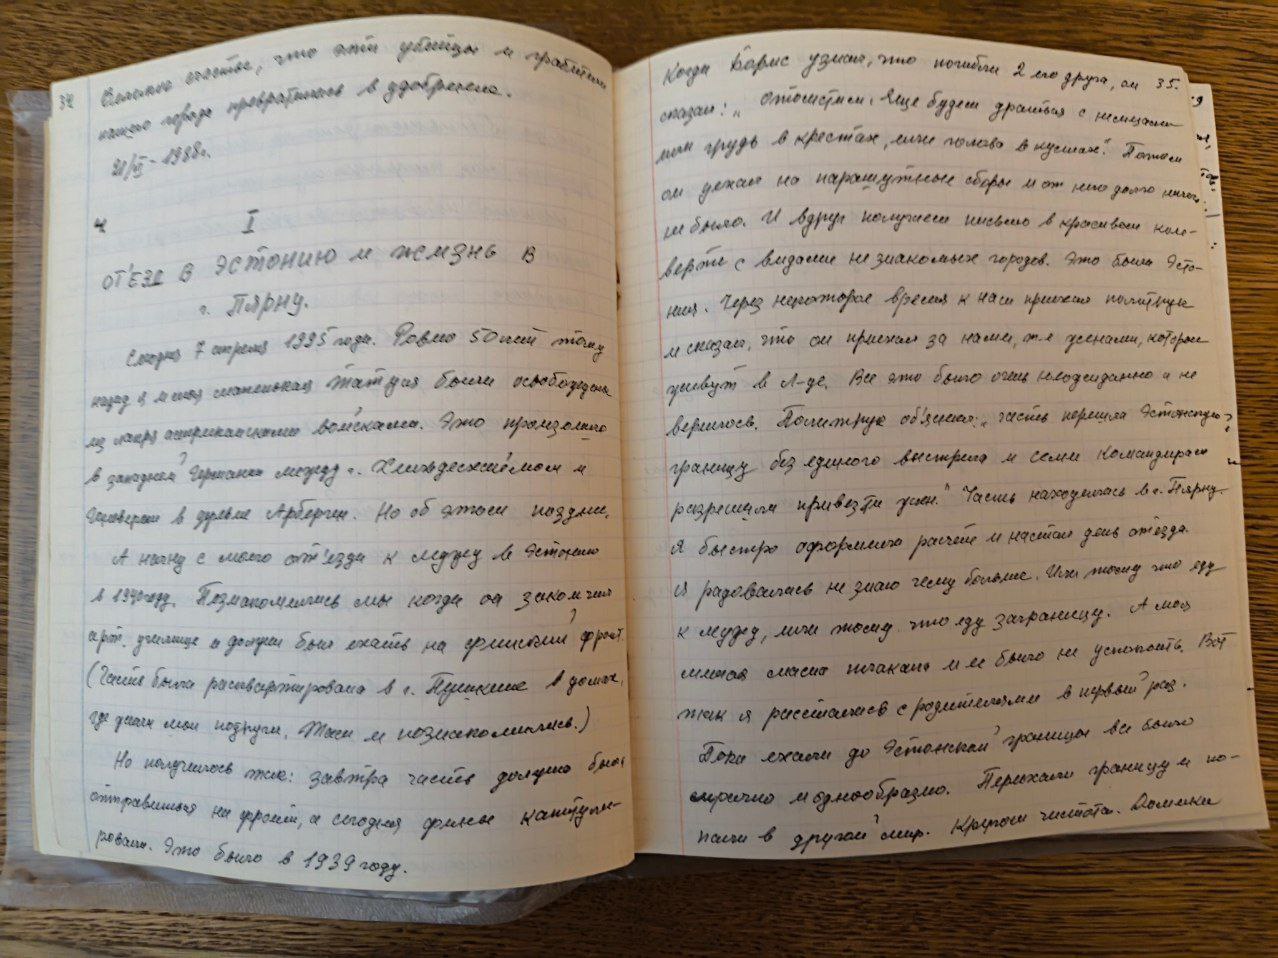 34
что эти убийцы и грабители
нашего города превратились в удобрение.
21/VI - 1988г.
I
ОТ'ЕЗД В ЭСТОНИЮ И ЖИЗНЬ В
г. ПЯРНУ.
Сегодня 7 апреля 1995 года. Ровно 50 лет тому
назад я и моя маленькая Татуся были освобождены
из лагеря американскими войсками. Это произошло
в западной Германии между г. и
Ганновером в деревне Арберген. Но об этом позднее.
А начну с моего от'езда к мужу в Эстонию
в 1940 году. Познакомились мы когда он закончил
арт. училище и должен был ехать на финский фронт.
(Часть была расквартирована в г. Пушкине в домах,
где жили мои подруги. Там и познакомились.)
Но получилось так: завтра часть должна была
отправиться на фронт, а сегодня финны капитули-
ровали. Это было в 1939 году.
35.
Когда Борис узнал, что погибли 2 его друга, он
сказал: „Отомстим. Еще будем драться с немцами
или грудь в крестах, или голова в кустах." Потом
он уехал на парашутные сборы и от него долго ничего
не было. И вдруг получаем письмо в красивом кон-
верте с видами незнакомых городов. Это была Эсто-
ния. Через некоторое время к нам приехал политрук
и сказал, что он приехал за нами, т.е женами, которые
живут в Л-де. Все это было очень неожиданно и не
верилось. Политрук об'яснил: „часть перешла Эстонскую
границу без единого выстрела и семи командирам
разрешили привезти жен." Часть находилась в г. Пярну.
Я быстро оформила расчет и настал день от'езда.
Я радовалась не знаю чему больше. Или тому что еду
к мужу, или тому что еду заграницу. А моя
милая мама плакала и ее было не успокоить. Вот
так я рассталась с родителями в первый раз.
Пока ехали до Эстонской границы все было
мрачно и однообразно. Переехали границу и по-
пали в другой мир. Кругом чистота. Домики